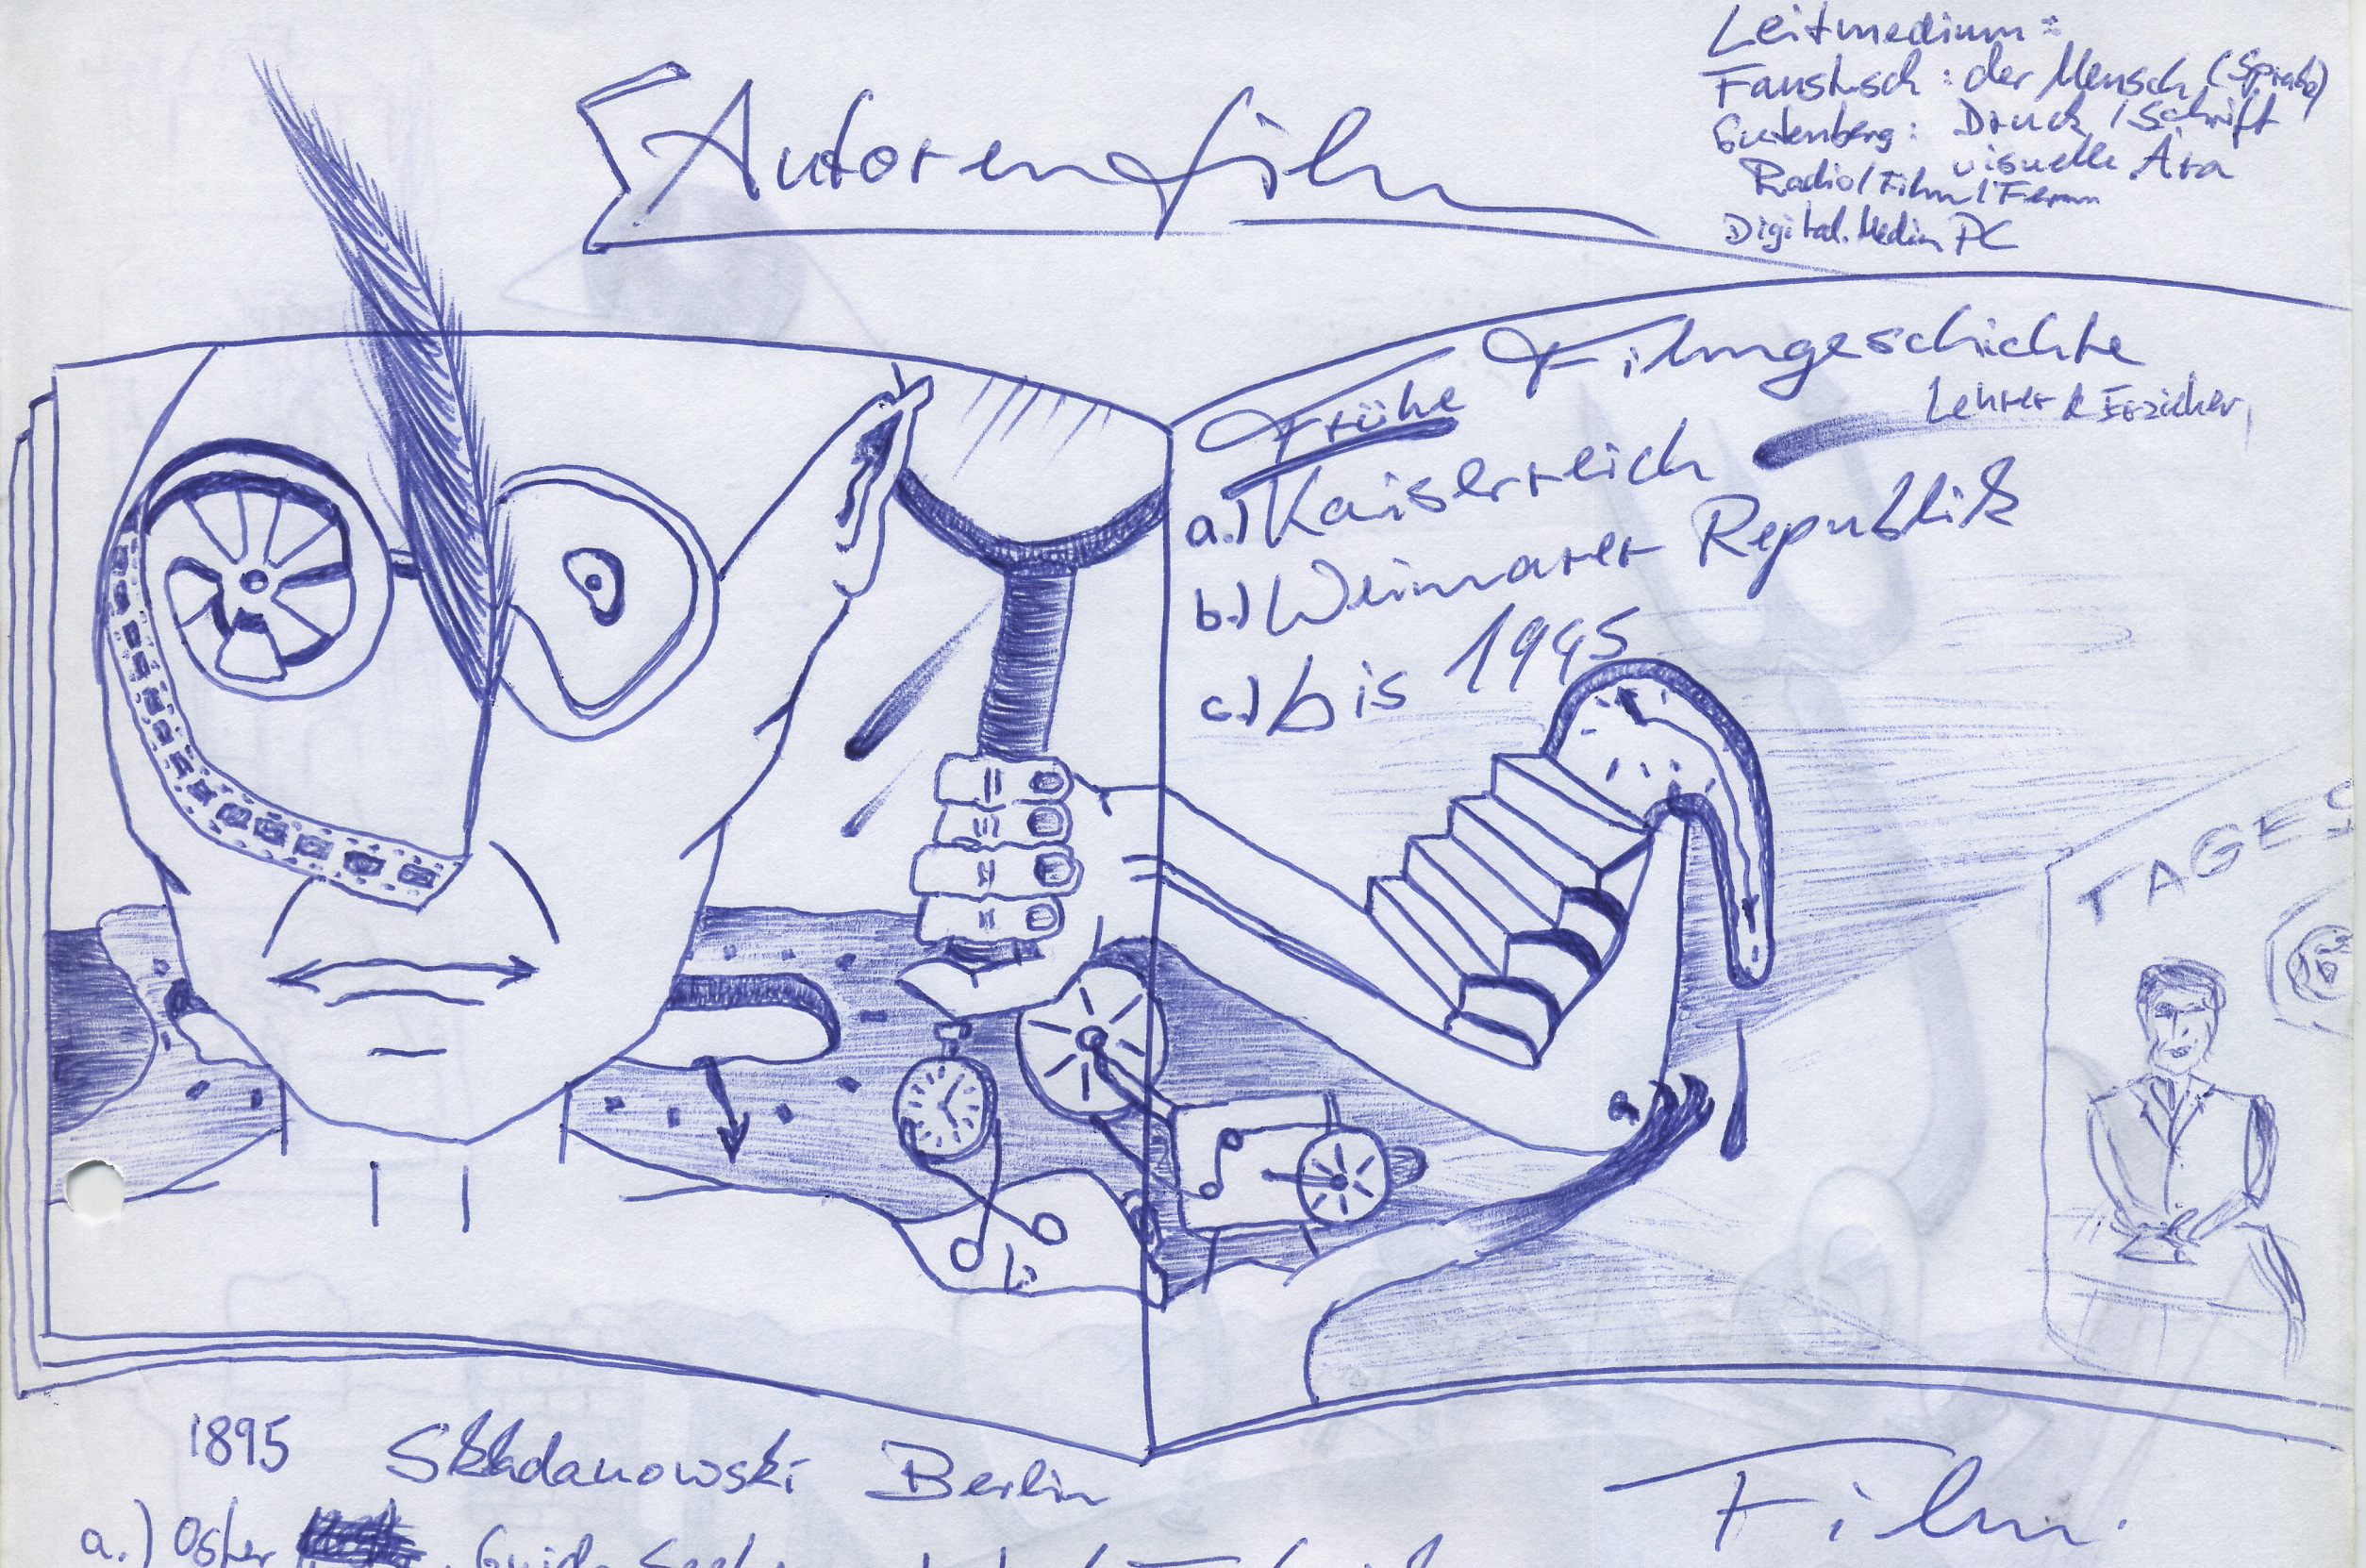 Autorenfilm
Leitmedium:
Faustisch: der Mensch
Gutenberg: Druck / Schrift
visuelle Ära
Radio / Film / Fernn
Digital. Medien PC
Filmgeschichte
Frühe
Lehrer & Erzieher
a.) Kaiserreich
b.) Weimarer Republik
c.) bis 1945
TAGES
1895 Skladanowski Berlin
Film.
a.) Guido